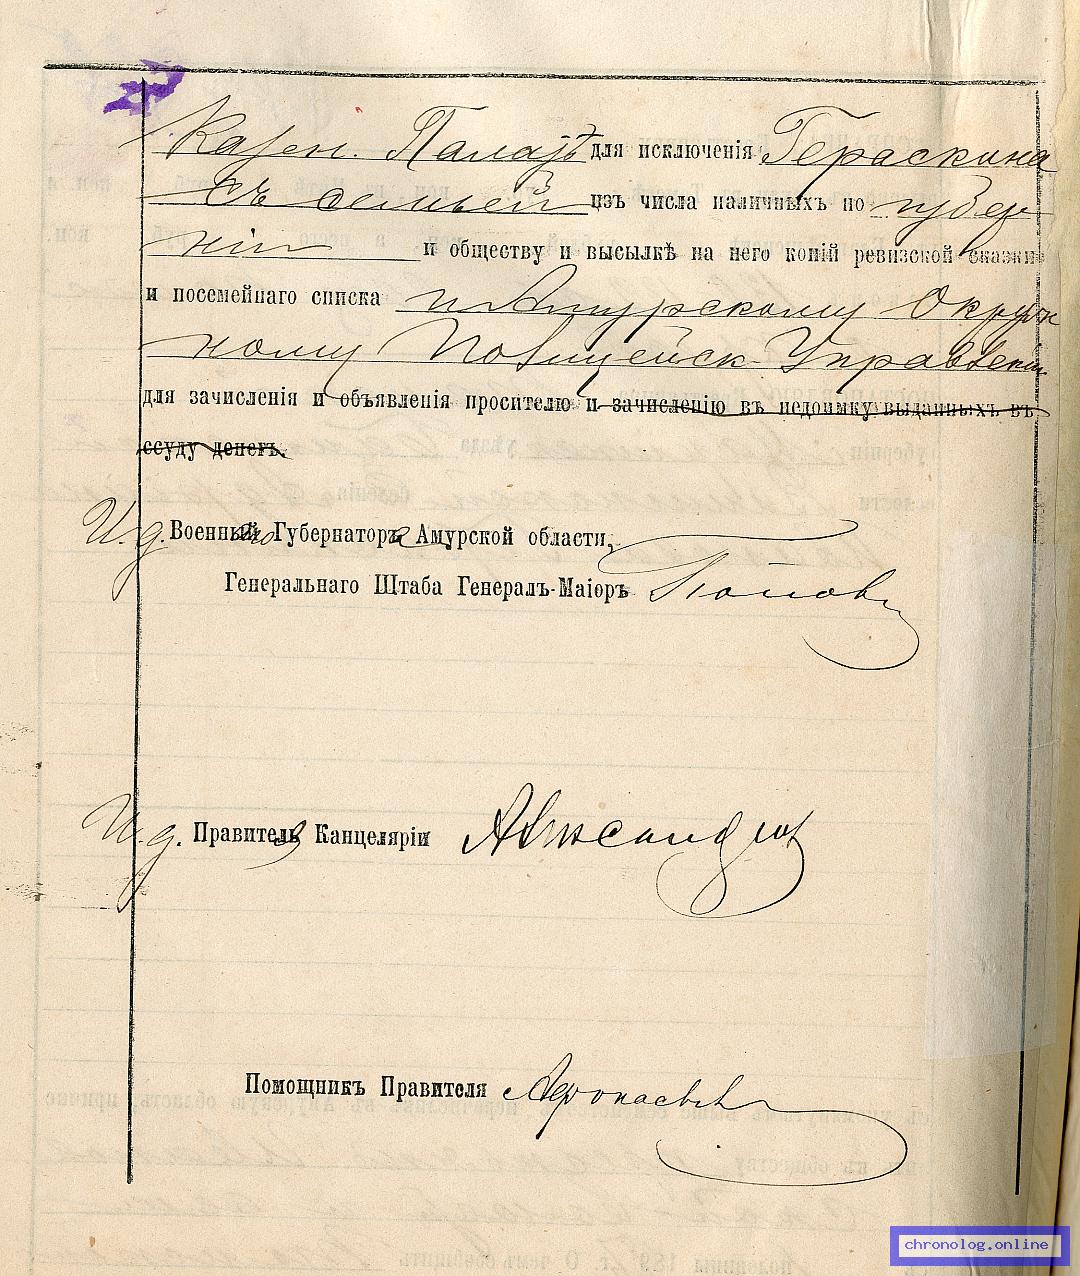 Казен. Палатѣ для исключенія Гераскина
съ семьей изъ числа наличныхъ по губер
ніи и обществу и высылкѣ на него копій ревизской сказки
и посемейнаго списка и Амурскому Окруж
ному Полицейск. Управленію
для зачисленія и объявленія просителю и зачисленію въ недоимку выданныхъ въ
ссуду денегъ.
И. д. Военнаго Губернатора Амурской области,
Генеральнаго Штаба Генералъ-Маіоръ Поповъ
И. д. Правителя Канцеляріи Александров
Помощникъ Правителя
chronolog.online